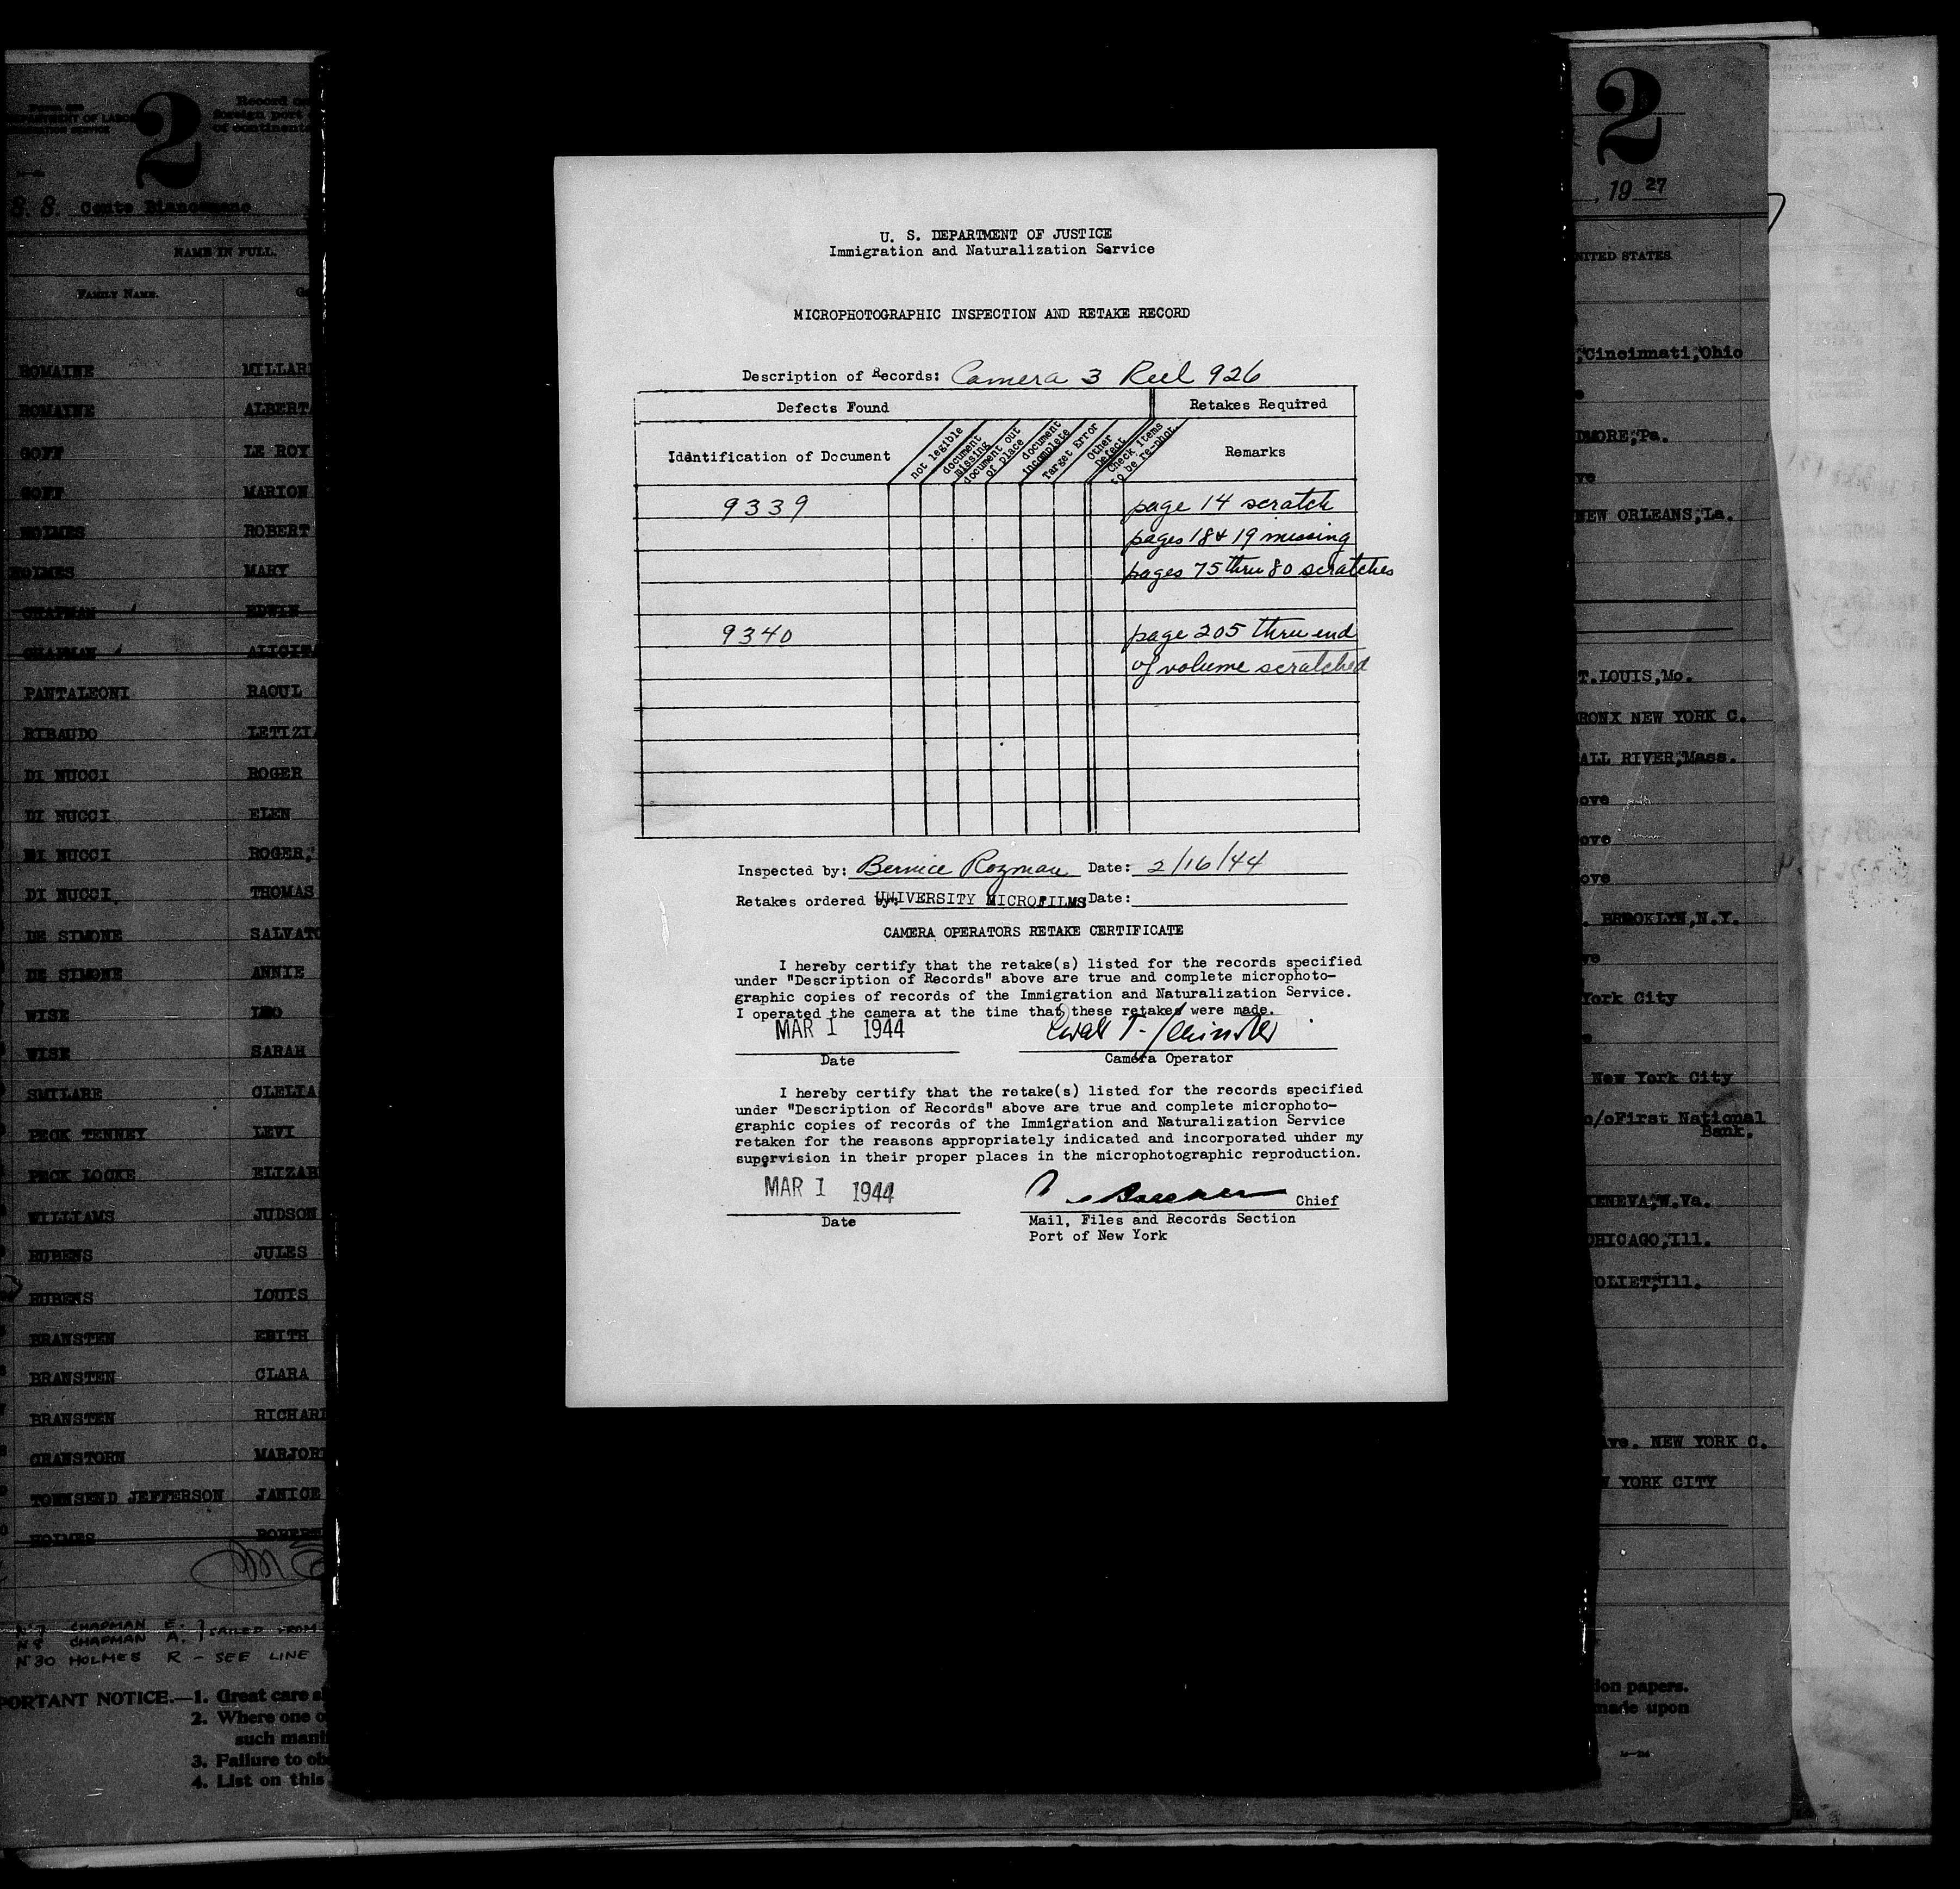 U. S. DEPARTMENT OF JUSTICE
Immigration and Naturalization Service
MICROPHOTOGRAPHIC INSPECTION AND RETAKE RECORD
Description of Records: Camera 3 Reel 926
Defects Found
Retakes Required
Identification of Document
not legible
document missing
document out of place
document incomplete
Target Error
Other defect
Check items to be re-phot.
Remarks
9339 page 14 scratch
pages 18 & 19 missing
pages 75 thru 80 scratches
9340 page 205 thru end
of volume scratched
Inspected by: Bernice Rozman Date: 2/16/44
Retakes ordered by: UNIVERSITY MICROFILMS Date:
CAMERA OPERATORS RETAKE CERTIFICATE
I hereby certify that the retake(s) listed for the records specified
under "Description of Records" above are true and complete microphoto-
graphic copies of records of the Immigration and Naturalization Service.
I operated the camera at the time that these retakes were made.
MAR 1 1944
Date
Camera Operator
I hereby certify that the retake(s) listed for the records specified
under "Description of Records" above are true and complete microphoto-
graphic copies of records of the Immigration and Naturalization Service
retaken for the reasons appropriately indicated and incorporated under my
supervision in their proper places in the microphotographic reproduction.
MAR 1 1944
Chief
Date
Mail, Files and Records Section
Port of New York
2
Record
foreign port
of continent
DEPARTMENT OF LABOR
S.S. Conte Biancamano
NAME IN FULL.
FAMILY NAME.
ROMAINE MILLARD
ROMAINE ALBERTA
GOFF LE ROY
GOFF MARION
HOLMES ROBERT
HOLMES MARY
CHAPMAN EDWIN
CHAPMAN
PANTALEONI RAOUL
RIBAUDO LETIZI
DI NUCCI ROGER
DI NUCCI ELEN
DI NUCCI ROGER,
DI NUCCI THOMAS
DE SIMONE SALVATO
DE SIMONE ANNIE
WISE LEO
WISE SARAH
SMILARE CLELIA
PECK TENNEY LEVY
PECK LOCKE ELIZAB
WILLIAMS JUDSON
RUBENS JULES
RUBENS LOUIS
BRANSTEN EDITH
BRANSTEN CLARA
BRANSTEN RICHARD
CRANSTORN MARJOR
TOWNSEND JEFFERSON JANICE
HOLMES ROBERT
N 7 CHAPMAN E.
N 8 CHAPMAN A. } FAILED FROM
N 30 HOLMES R - SEE LINE
PORTANT NOTICE.—1. Great care
2. Where one
such mani
3. Failure to ob
4. List on this
2
, 19 27
NITED STATES
,Cincinnati,Ohio
DMORE,Pa.
ve
NEW ORLEANS,La.
T.LOUIS,Mo.
RONX NEW YORK C.
ALL RIVER,Mass.
ove
ove
ove
. BROOKLYN,N.Y.
ve
York City
New York City
c/oFirst National
Bank.
ENEVA,W.Va.
CHICAGO,Ill.
OLIET,Ill.
Ave. NEW YORK C.
W YORK CITY
ion papers.
made upon